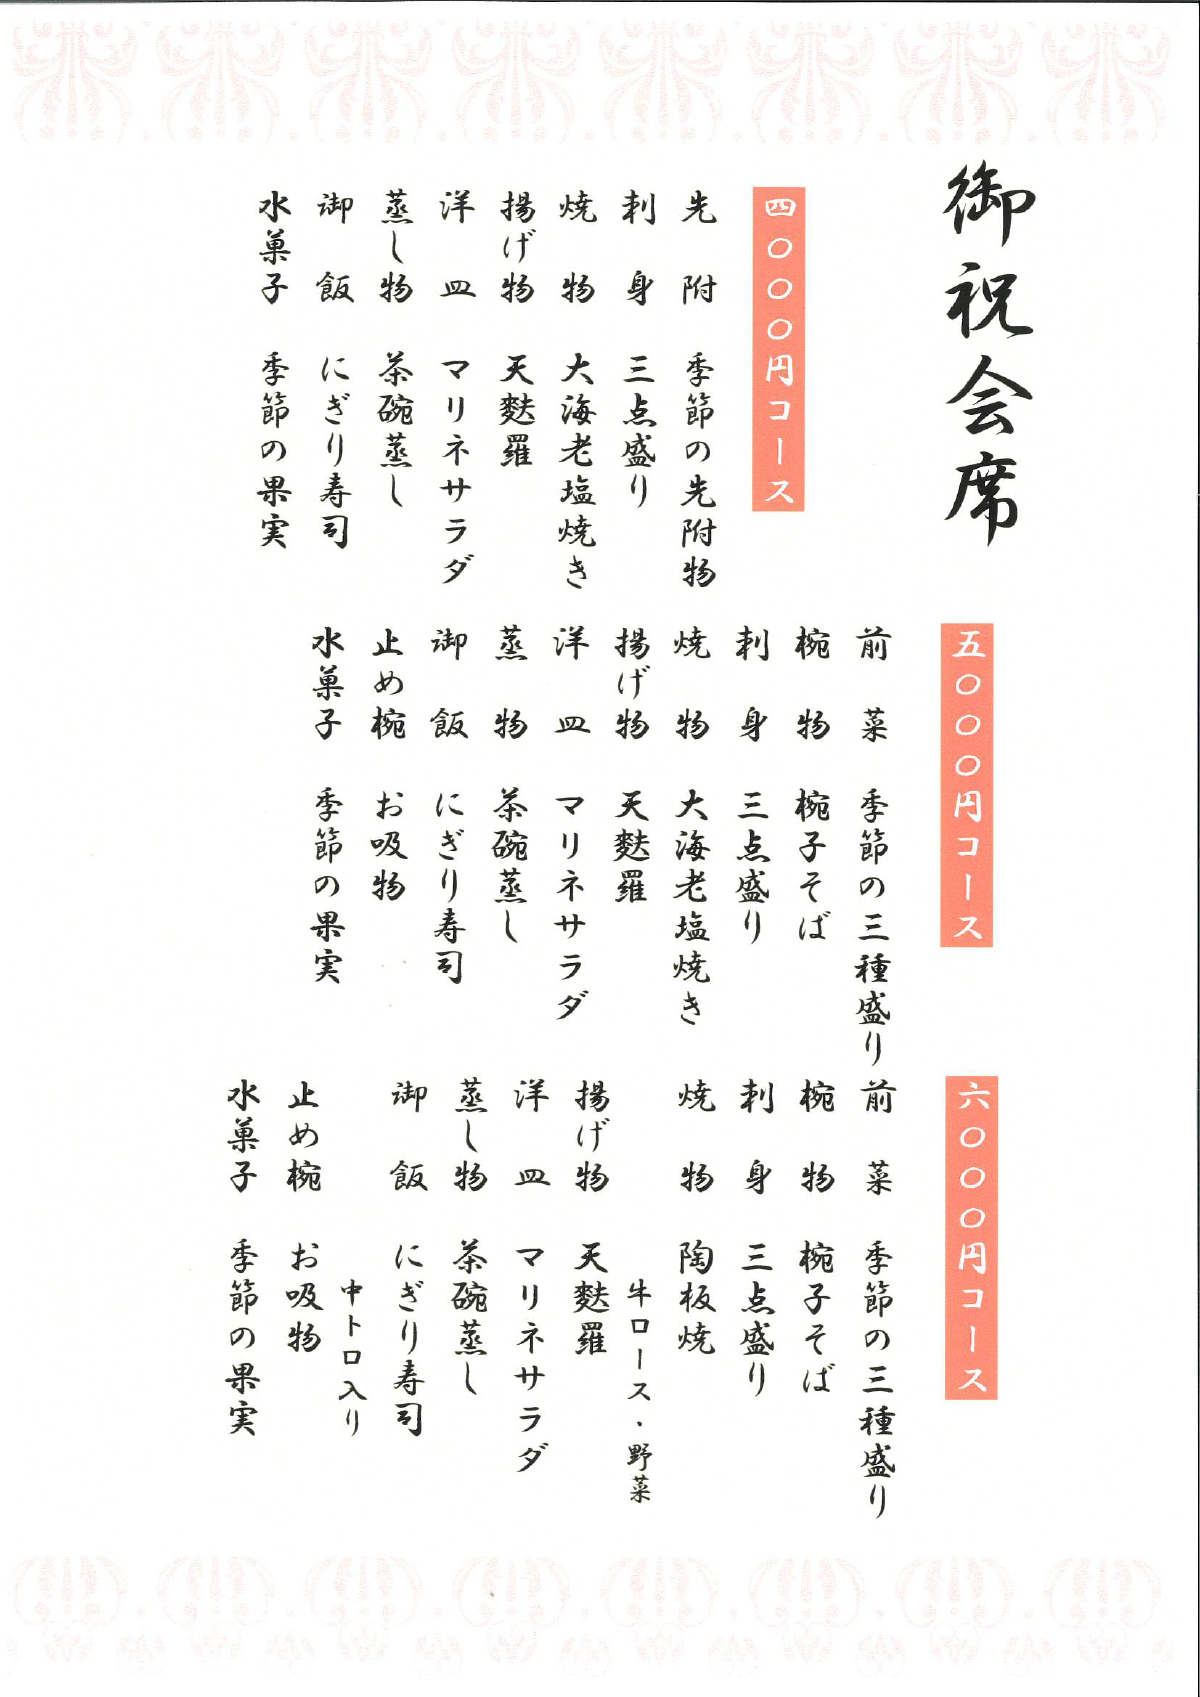 御祝会席
四〇〇〇円コース
先附 季節の先附物
刺身 三点盛り
焼物 大海老塩焼き
揚げ物 天麩羅
洋皿 マリネサラダ
蒸し物 茶碗蒸し
御飯 にぎり寿司
水菓子 季節の果実
五〇〇〇円コース
前菜 季節の三種盛り
椀物 椀子そば
刺身 三点盛り
焼物 大海老塩焼き
揚げ物 天麩羅
洋皿 マリネサラダ
蒸物 茶碗蒸し
御飯 にぎり寿司
止め椀 お吸物
水菓子 季節の果実
六〇〇〇円コース
前菜 季節の三種盛り
椀物 椀子そば
刺身 三点盛り
焼物 陶板焼
牛ロース・野菜
揚げ物 天麩羅
洋皿 マリネサラダ
蒸し物 茶碗蒸し
御飯 にぎり寿司
中トロ入り
止め椀 お吸物
水菓子 季節の果実